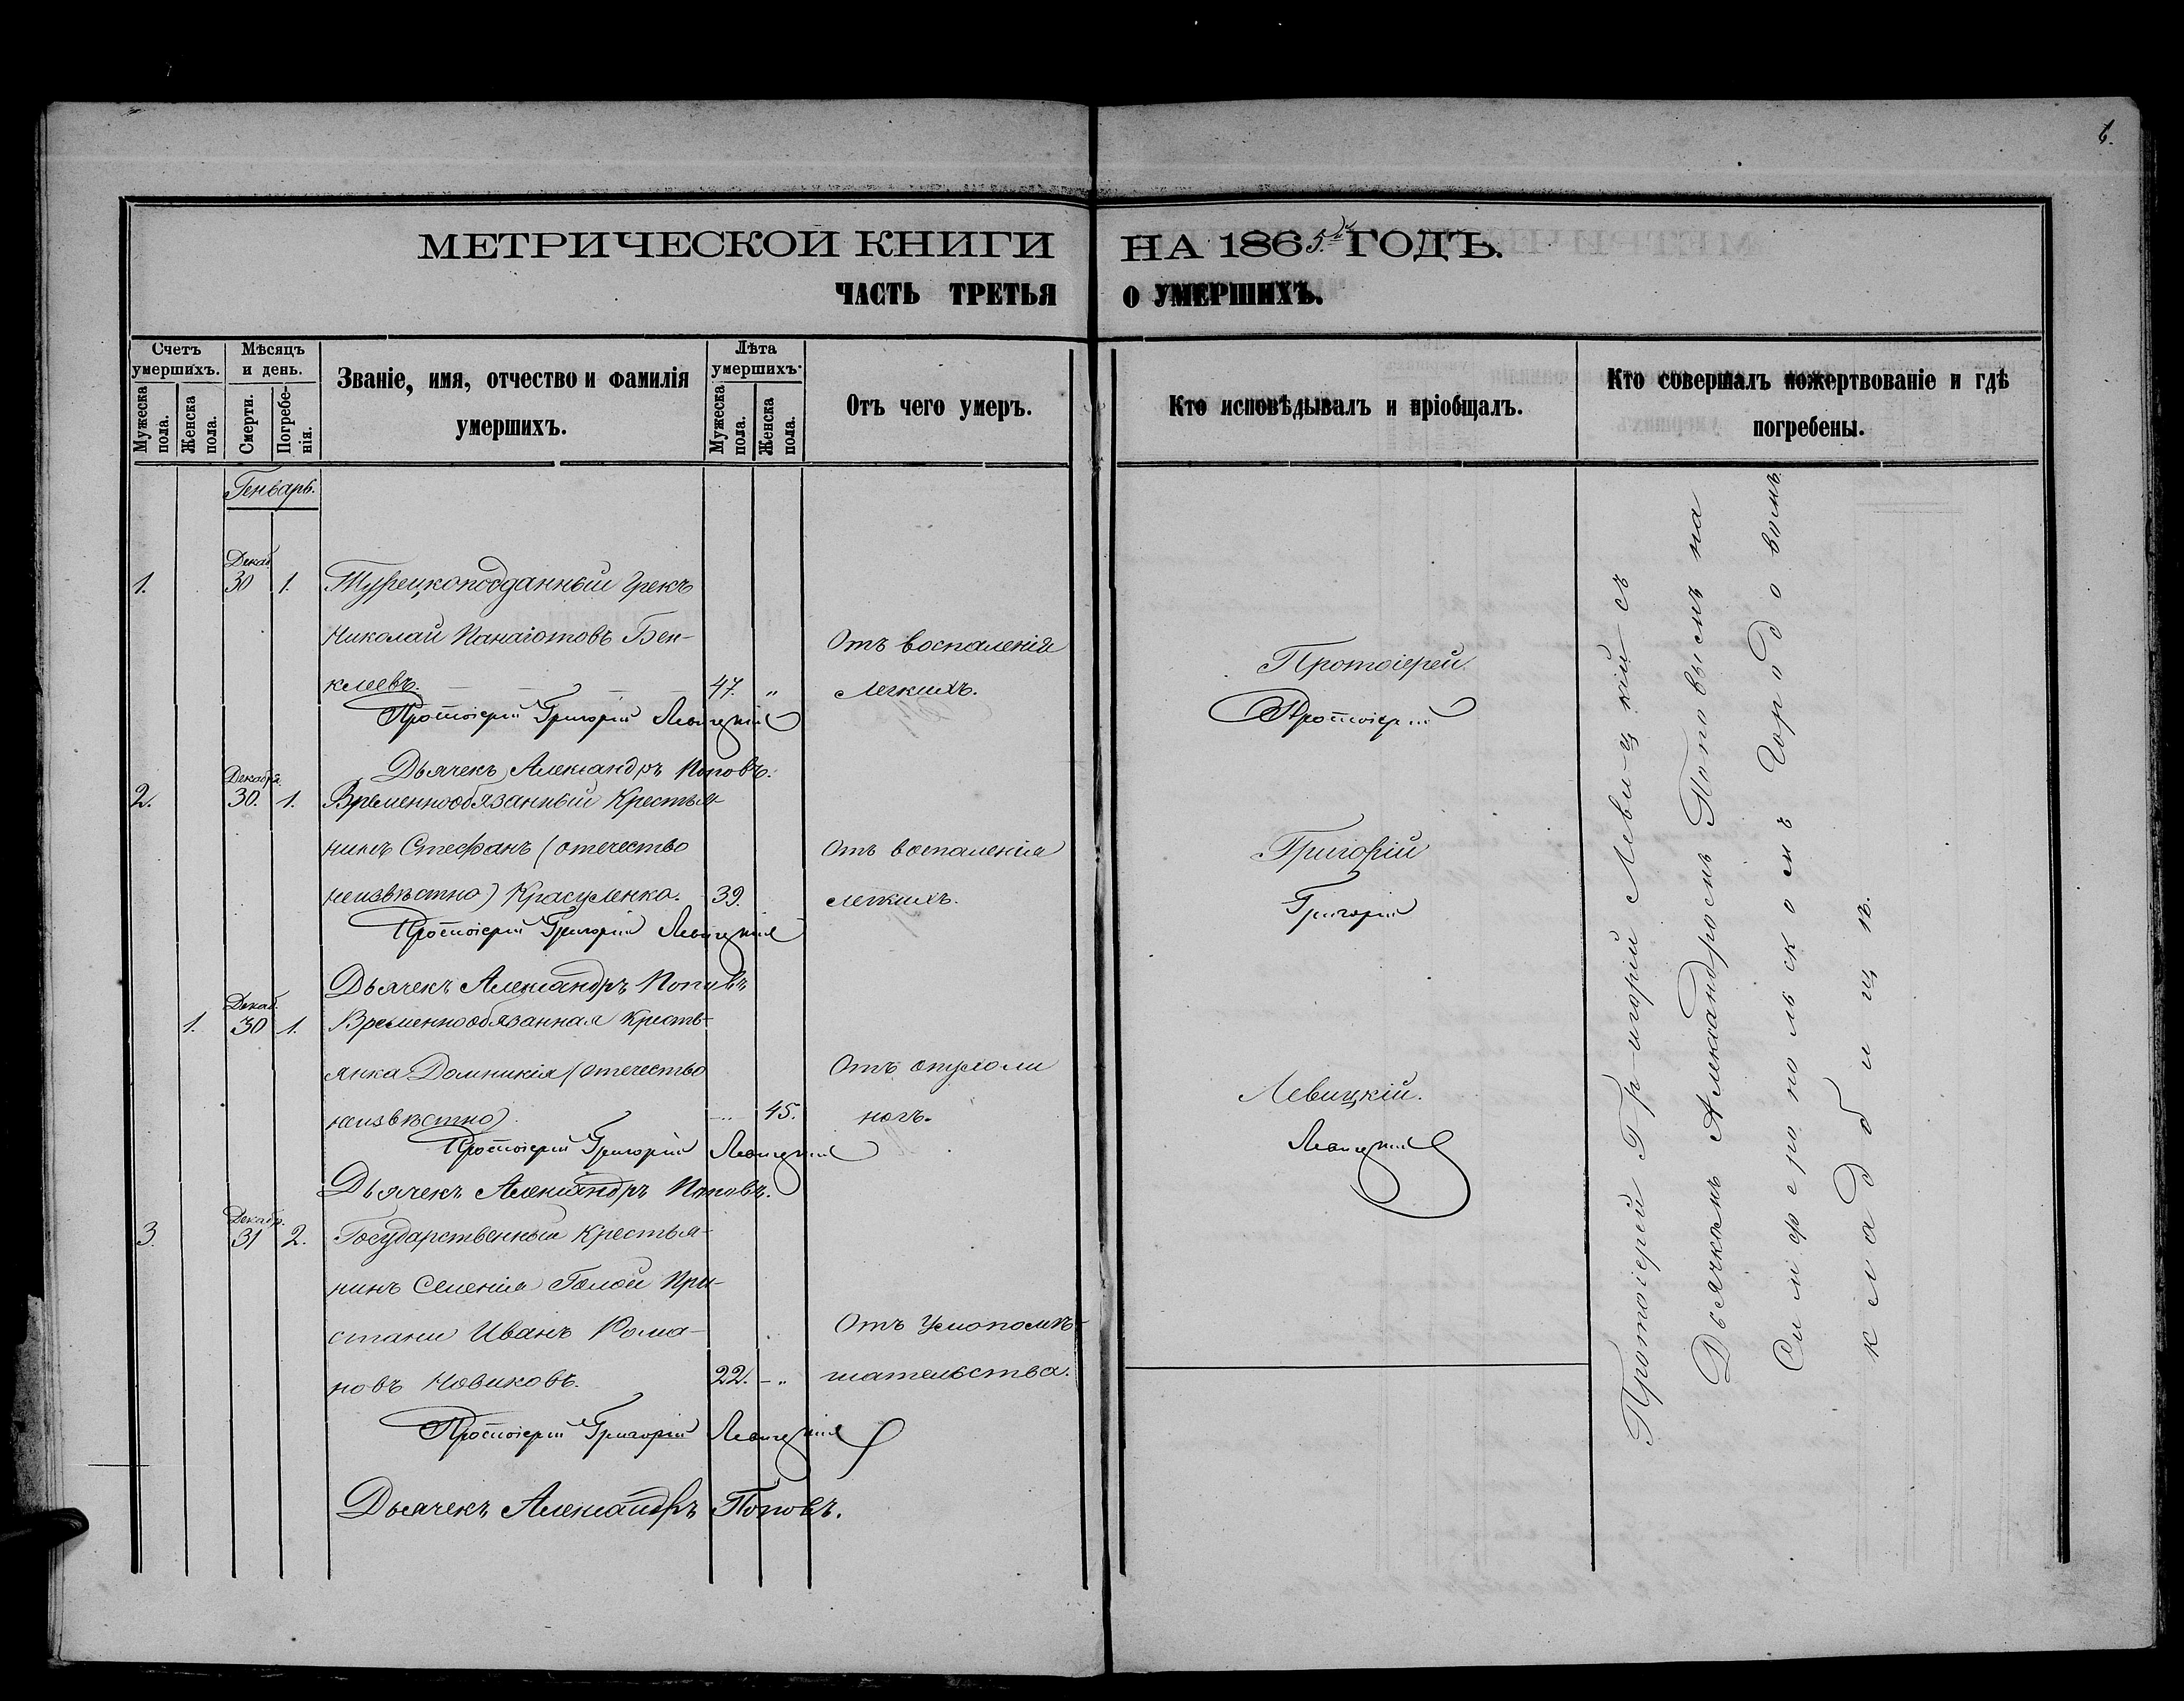 6.
МЕТРИЧЕСКОЙ КНИГИ НА 1865.й ГОДЪ.
ЧАСТЬ ТРЕТЬЯ О УМЕРШИХЪ.
Счетъ умершихъ.
Мужеска пола.
Женска пола.
Мѣсяцъ и день.
Смерти.
Погребенія.
Званіе, имя, отчество и фамилія
умершихъ.
Лѣта умершихъ.
Мужеска пола.
Женска пола.
Отъ чего умеръ.
Кто исповѣдывалъ и пріобщалъ.
Кто совершалъ пожертвованіе и гдѣ
погребены.
Генварь.
Декаб.
1. 30 1. Турецкоподданный Грекъ
Николай Панаіотовъ Бен-
клеевъ. 47. "
Отъ воспаленія
легкихъ.
Протоіерей Григорій Левицкій
Дьячекъ Александръ Поповъ.
Декабря.
2. 30. 1. Временнообязанный Крестья-
нинъ Стефанъ (отечество
неизвѣстно) Красуленко. 39.
Отъ воспаленія
легкихъ.
Протоіерей Григорій Левицкій
Дьячекъ Александръ Поповъ
Декаб.
1. 30 1. Временнообязанная Кресть-
янка Домникія (отечество
неизвѣстно) 45.
Отъ опухоли
ногъ.
Протоіерей Григорій Левицкій
Дьячекъ Александръ Поповъ.
Декабр.
3. 31 2. Государственный Крестья-
нинъ Селенія Голой При-
стани Иванъ Рома-
новъ Новиковъ. 22. - "
Отъ Умопомѣ-
шательства.
Протоіерей Григорій Левицкій
Дьячекъ Александръ Поповъ.
Протоіерей
Протоіерей
Григорій
Григорій
Левицкій.
Левицкій
Протоіерей Григорій Левицкій съ
Дьячкомъ Александромъ Поповымъ на
Симферопольскомъ Городовомъ
кладбищѣ.